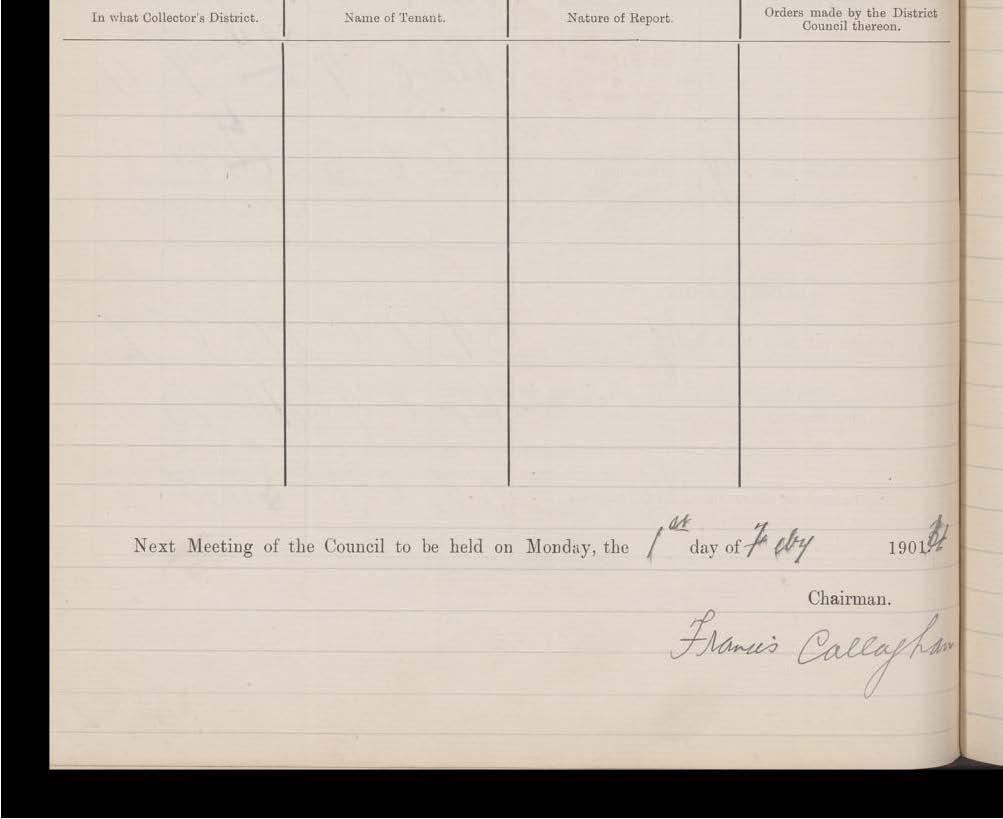 In what Collector's District. Name of Tenant. Nature of Report. Orders made by the District Council thereon.
Next Meeting of the Council to be held on Monday, the 1st day of Feby 1901
Chairman.
Francis Callaghan